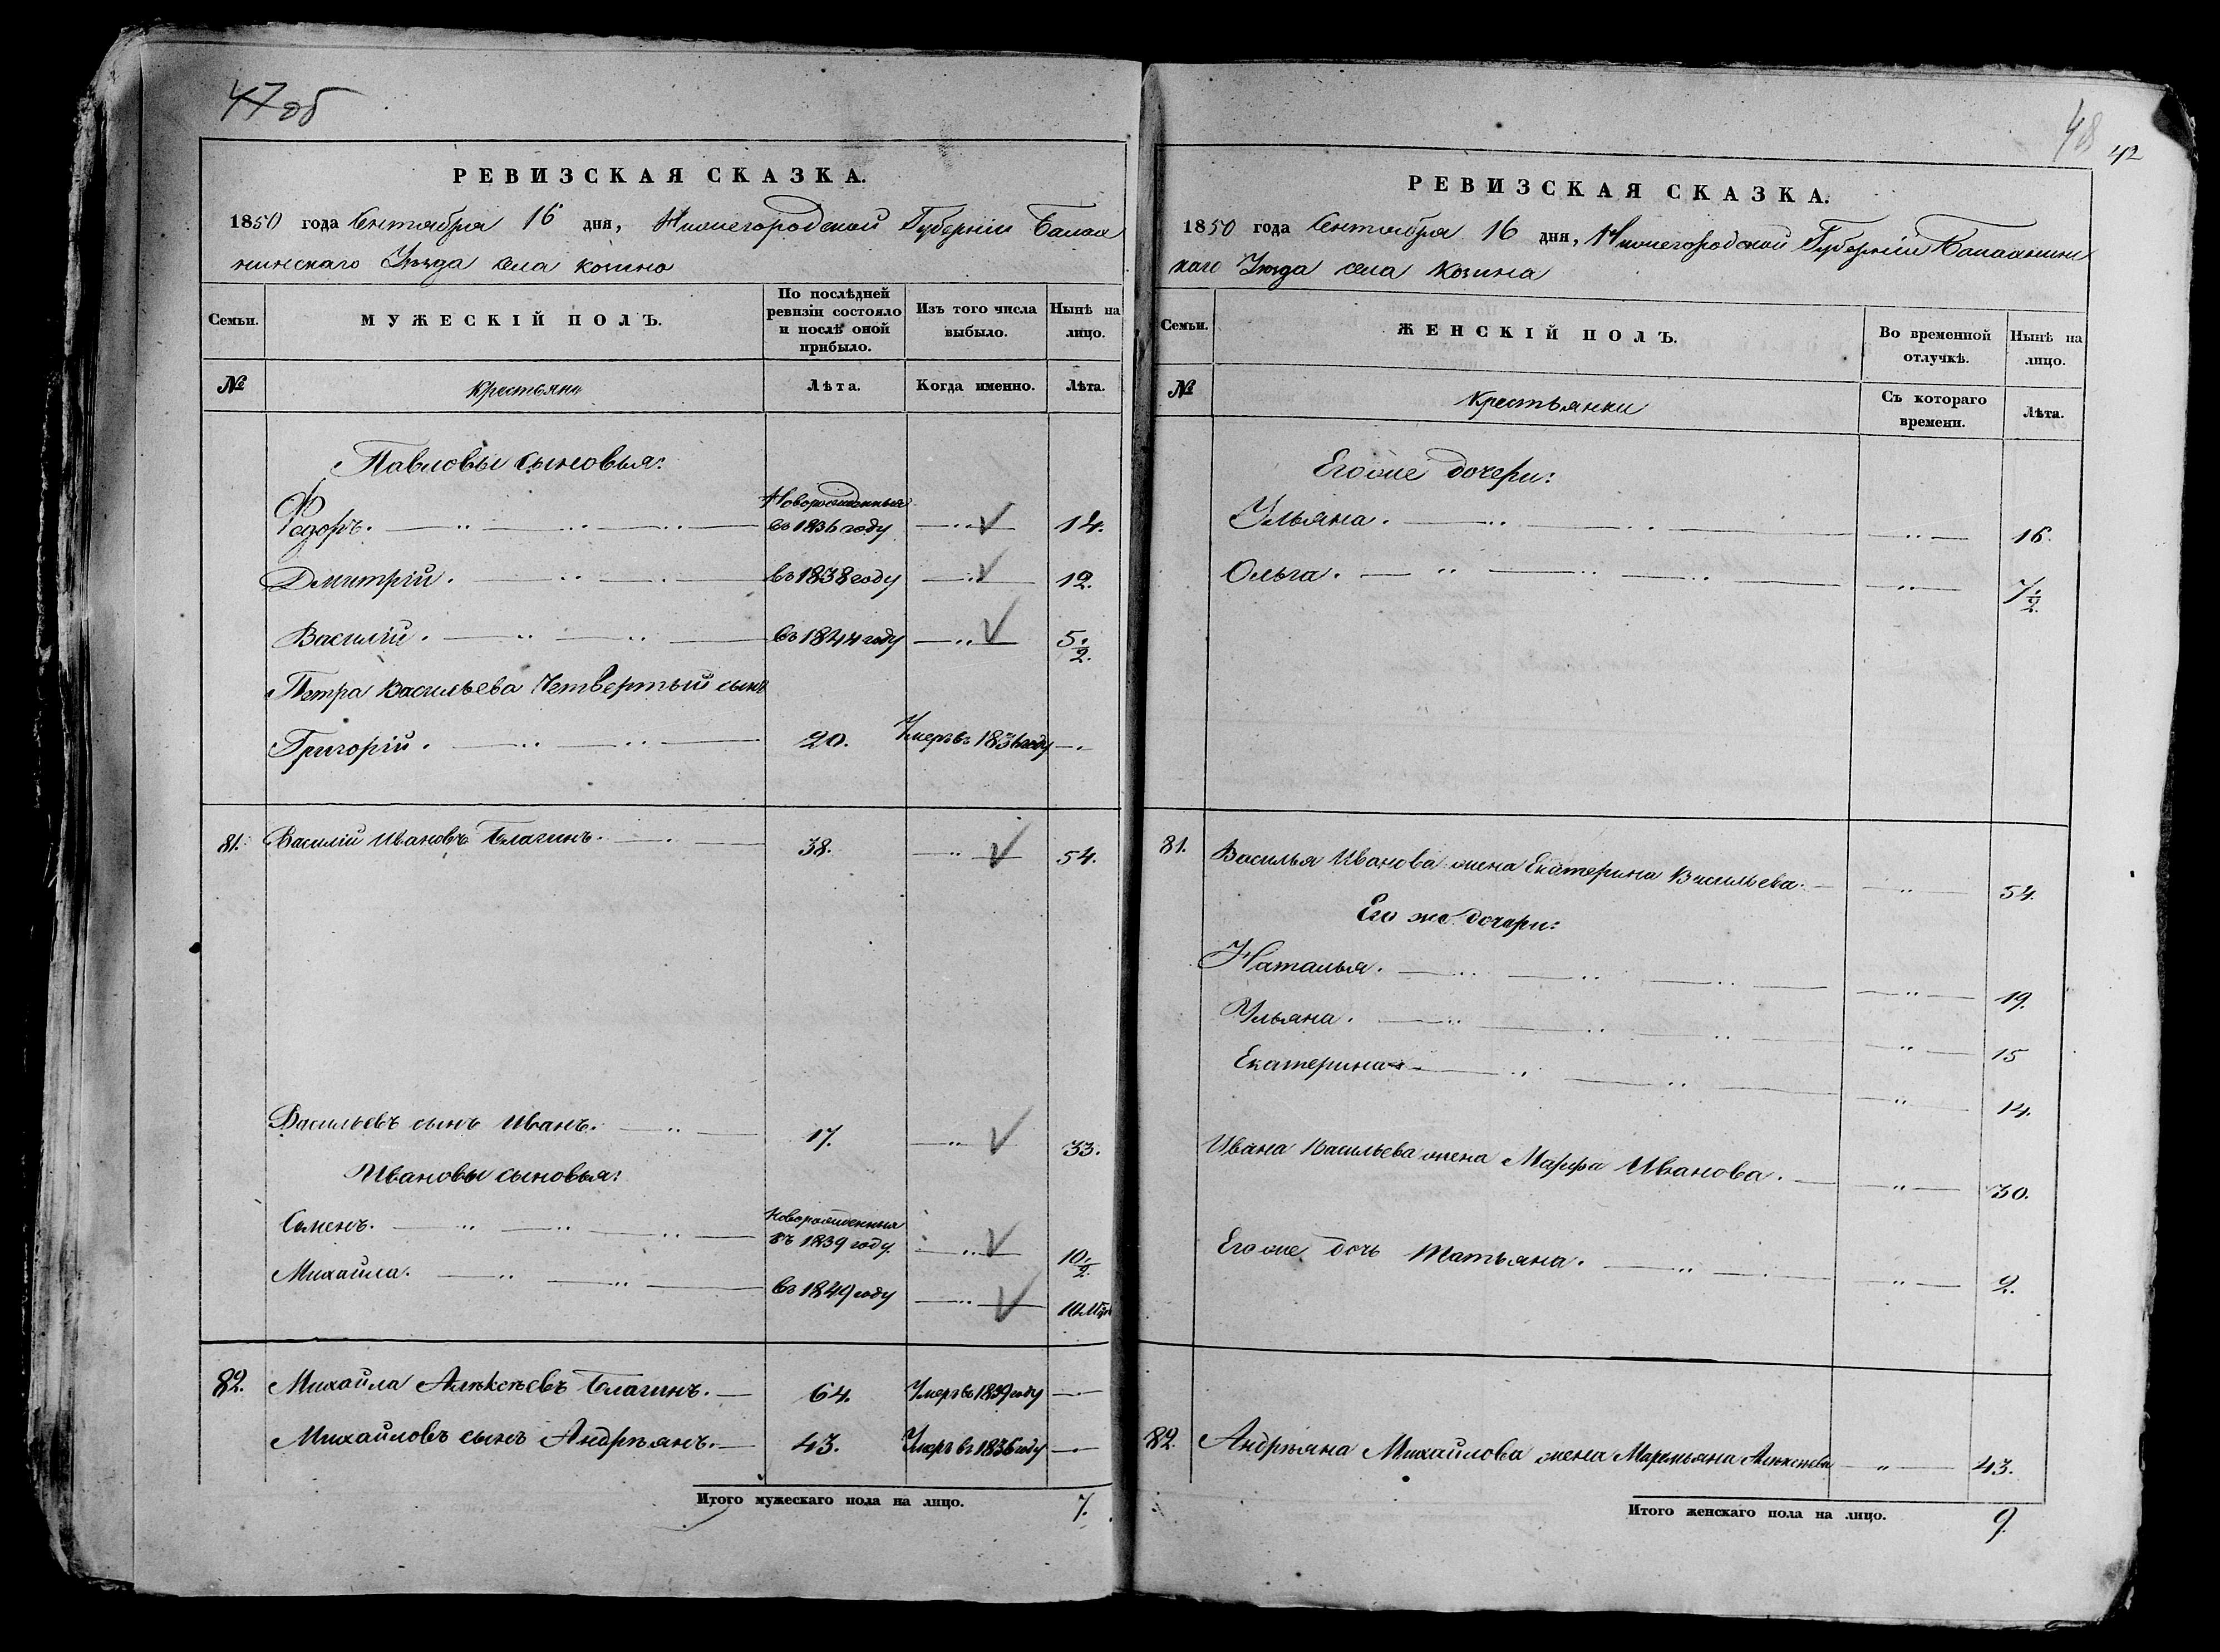 47об
РЕВИЗСКАЯ СКАЗКА.
1850 года Сентября 16 дня, Нижегородской Губерніи Балах
нинскаго Уѣзда села Козино
Семьи. МУЖЕСКІЙ ПОЛЪ. По послѣдней ревизіи состояло и послѣ оной прибыло. Изъ того числа выбыло. Нынѣ на лицо.
№ Крестьяне Лѣта. Когда именно. Лѣта.
Павловы сыновья:
Ѳедоръ. Новорожденныя въ 1836 году 14.
Дмитрій. въ 1838 году 12.
Василій. въ 1844 году 5 1/2.
Петра Васильева Четвертый сынъ
Григорій. 20. Умеръ въ 1836 году
81. Василій Ивановъ Благинъ. 38. 54.
Васильевъ сынъ Иванъ. 17. 33.
Ивановы сыновья:
Семенъ. Новорожденныя въ 1839 году 10 1/2.
Михайла. въ 1849 году 10 Мѣс
82. Михайла Алексѣевъ Благинъ. 64. Умеръ въ 1839 году
Михайловъ сынъ Андреянъ. 43. Умеръ въ 1836 году
Итого мужескаго пола на лицо. 7.
48 42
РЕВИЗСКАЯ СКАЗКА.
1850 года Сентября 16 дня, Нижегородской Губерніи Балахнинс
каго Уѣзда села Козина
Семьи. ЖЕНСКІЙ ПОЛЪ. Во временной отлучкѣ. Нынѣ на лицо.
№ Крестьянки Съ котораго времени. Лѣта.
Его же дочери:
Ульяна. 16.
Ольга. 7 1/2.
81. Василья Иванова жена Екатерина Васильева. 54.
Его же дочери:
Наталья. 19.
Ульяна. 15
Екатерина 14.
Ивана Васильева жена Марфа Иванова. 30.
Его же дочь Татьяна. 2.
82. Андреяна Михайлова жена Маремьяна Алексѣева 43.
Итого женскаго пола на лицо. 9.